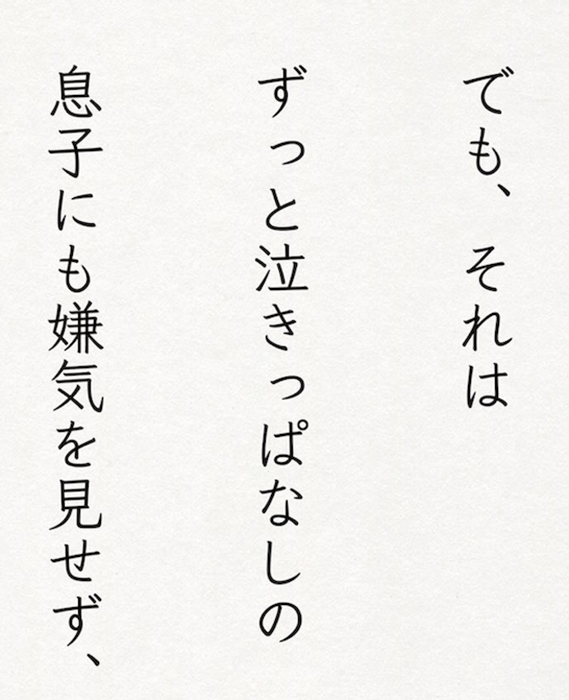 でも、それは
ずっと泣きっぱなしの
息子にも嫌気を見せず、